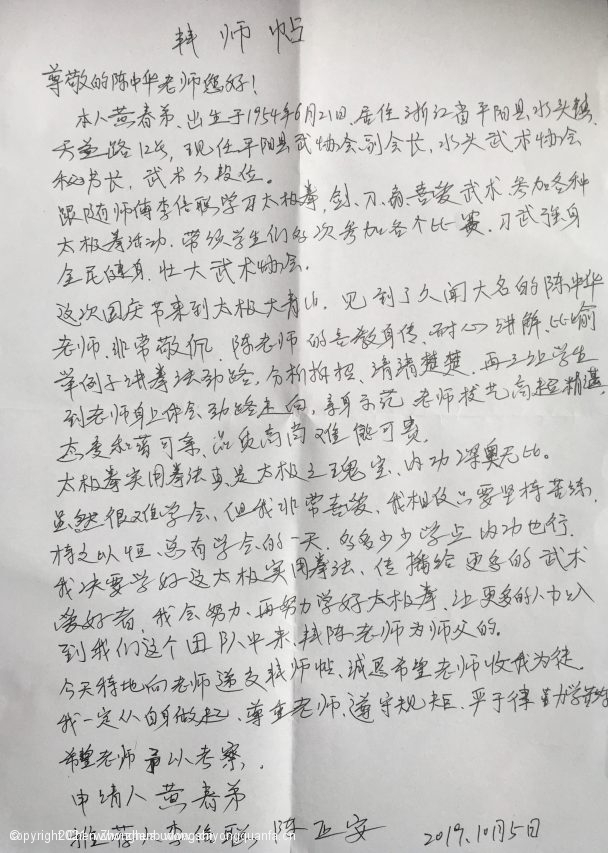 拜师帖
尊敬的陈中华老师您好!
本人黄春弟、出生于1954年6月21日、居住浙江省平阳县水头镇
路12号,现任平阳县武协会副会长,水头武术协会
秘书长,武术六段位。
跟随师傅李信聪学习太极拳,剑、刀、喜爱武术、参加各种
太极拳活动、带领学生们多次参加各个比赛、习武强身
全民健身、壮大武术协会、
这次国庆节来到太极大青山、见到了久闻大名的陈中华
老师、非常敬佩、陈老师的言教身传、耐心讲解、比喻
举例子讲拳法劲路、分析拆招、清清楚楚、再三让学生
到老师身上体会劲路走向,亲身示范 老师技艺高超精湛
态度和蔼可亲、品质高尚难能可贵、
太极拳实用拳法真是太极之瑰宝、内功深奥无比。
虽然很难学会、但我非常喜爱、我相信只要坚持苦练、
持之以恒、总有学会的一天、多多少少学点内功也行、
我决要学好这太极实用拳法、传播给更多的武术
爱好者、我会努力、再努力学好太极拳、让更多的人加入
到我们这个团队中来、拜陈老师为师父的。
今天特地向老师递交拜师帖、诚恳希望老师收我为徒、
我一定从自身做起、尊重老师、遵守规矩、严于律
希望老师予以考察、
申请人 黄春弟
推荐人 李信聪 陈正安 2019、10月5日